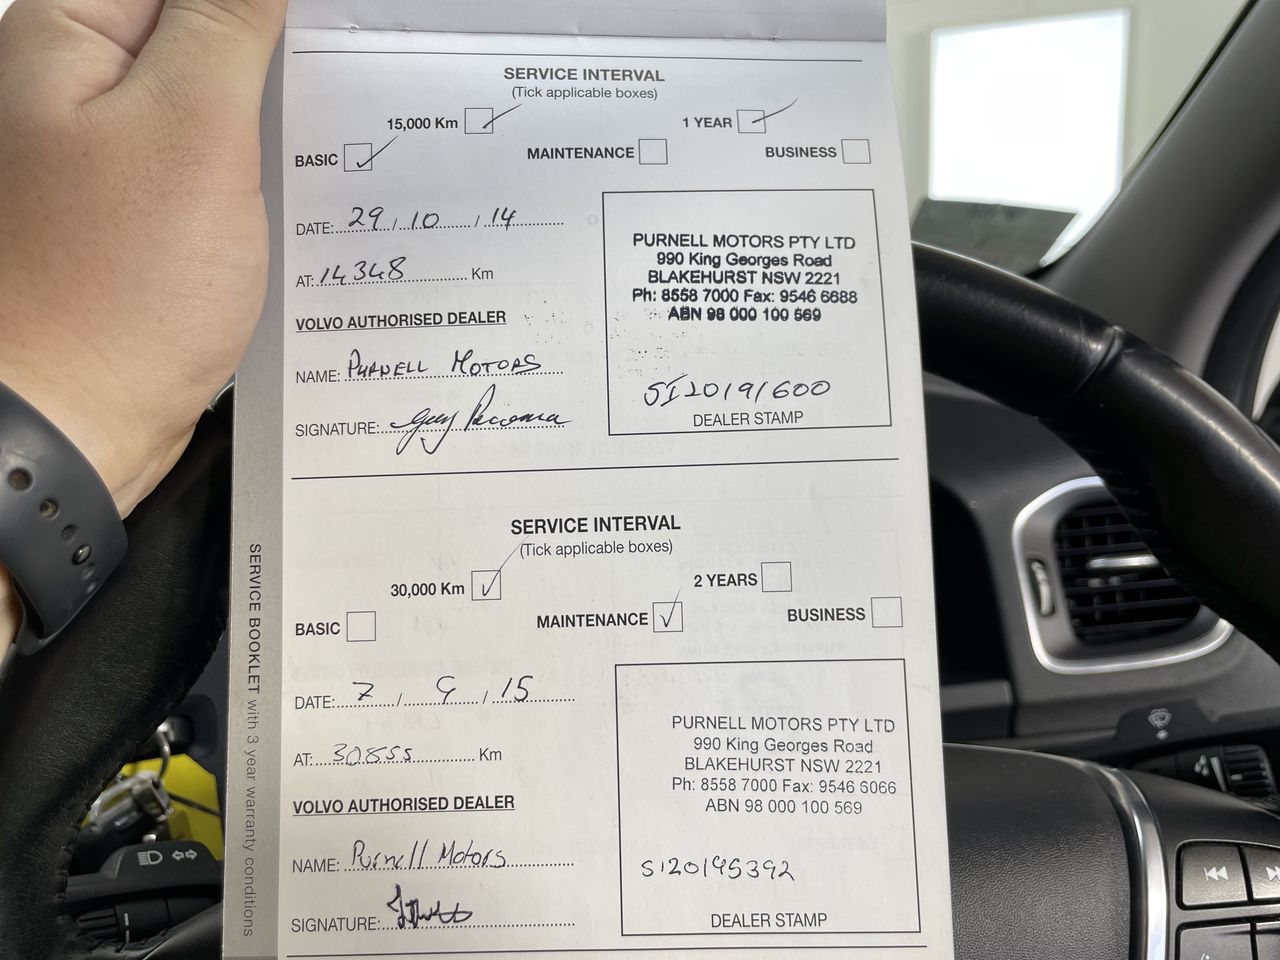 SERVICE INTERVAL
(Tick applicable boxes)
15,000 Km 1 YEAR
BASIC MAINTENANCE BUSINESS
DATE: 29 / 10 / 14
AT: 14348 Km
VOLVO AUTHORISED DEALER
NAME: PURNELL MOTORS
SIGNATURE:
PURNELL MOTORS PTY LTD
990 King Georges Road
BLAKEHURST NSW 2221
Ph: 8558 7000 Fax: 9546 6688
ABN 98 000 100 569
SI20191600
DEALER STAMP
SERVICE INTERVAL
(Tick applicable boxes)
30,000 Km 2 YEARS
BASIC MAINTENANCE BUSINESS
DATE: 7 / 9 / 15
AT: 30855 Km
VOLVO AUTHORISED DEALER
NAME: Purnell Motors
SIGNATURE:
PURNELL MOTORS PTY LTD
990 King Georges Road
BLAKEHURST NSW 2221
Ph: 8558 7000 Fax: 9546 6066
ABN 98 000 100 569
SI20195392
DEALER STAMP
SERVICE BOOKLET with 3 year warranty conditions